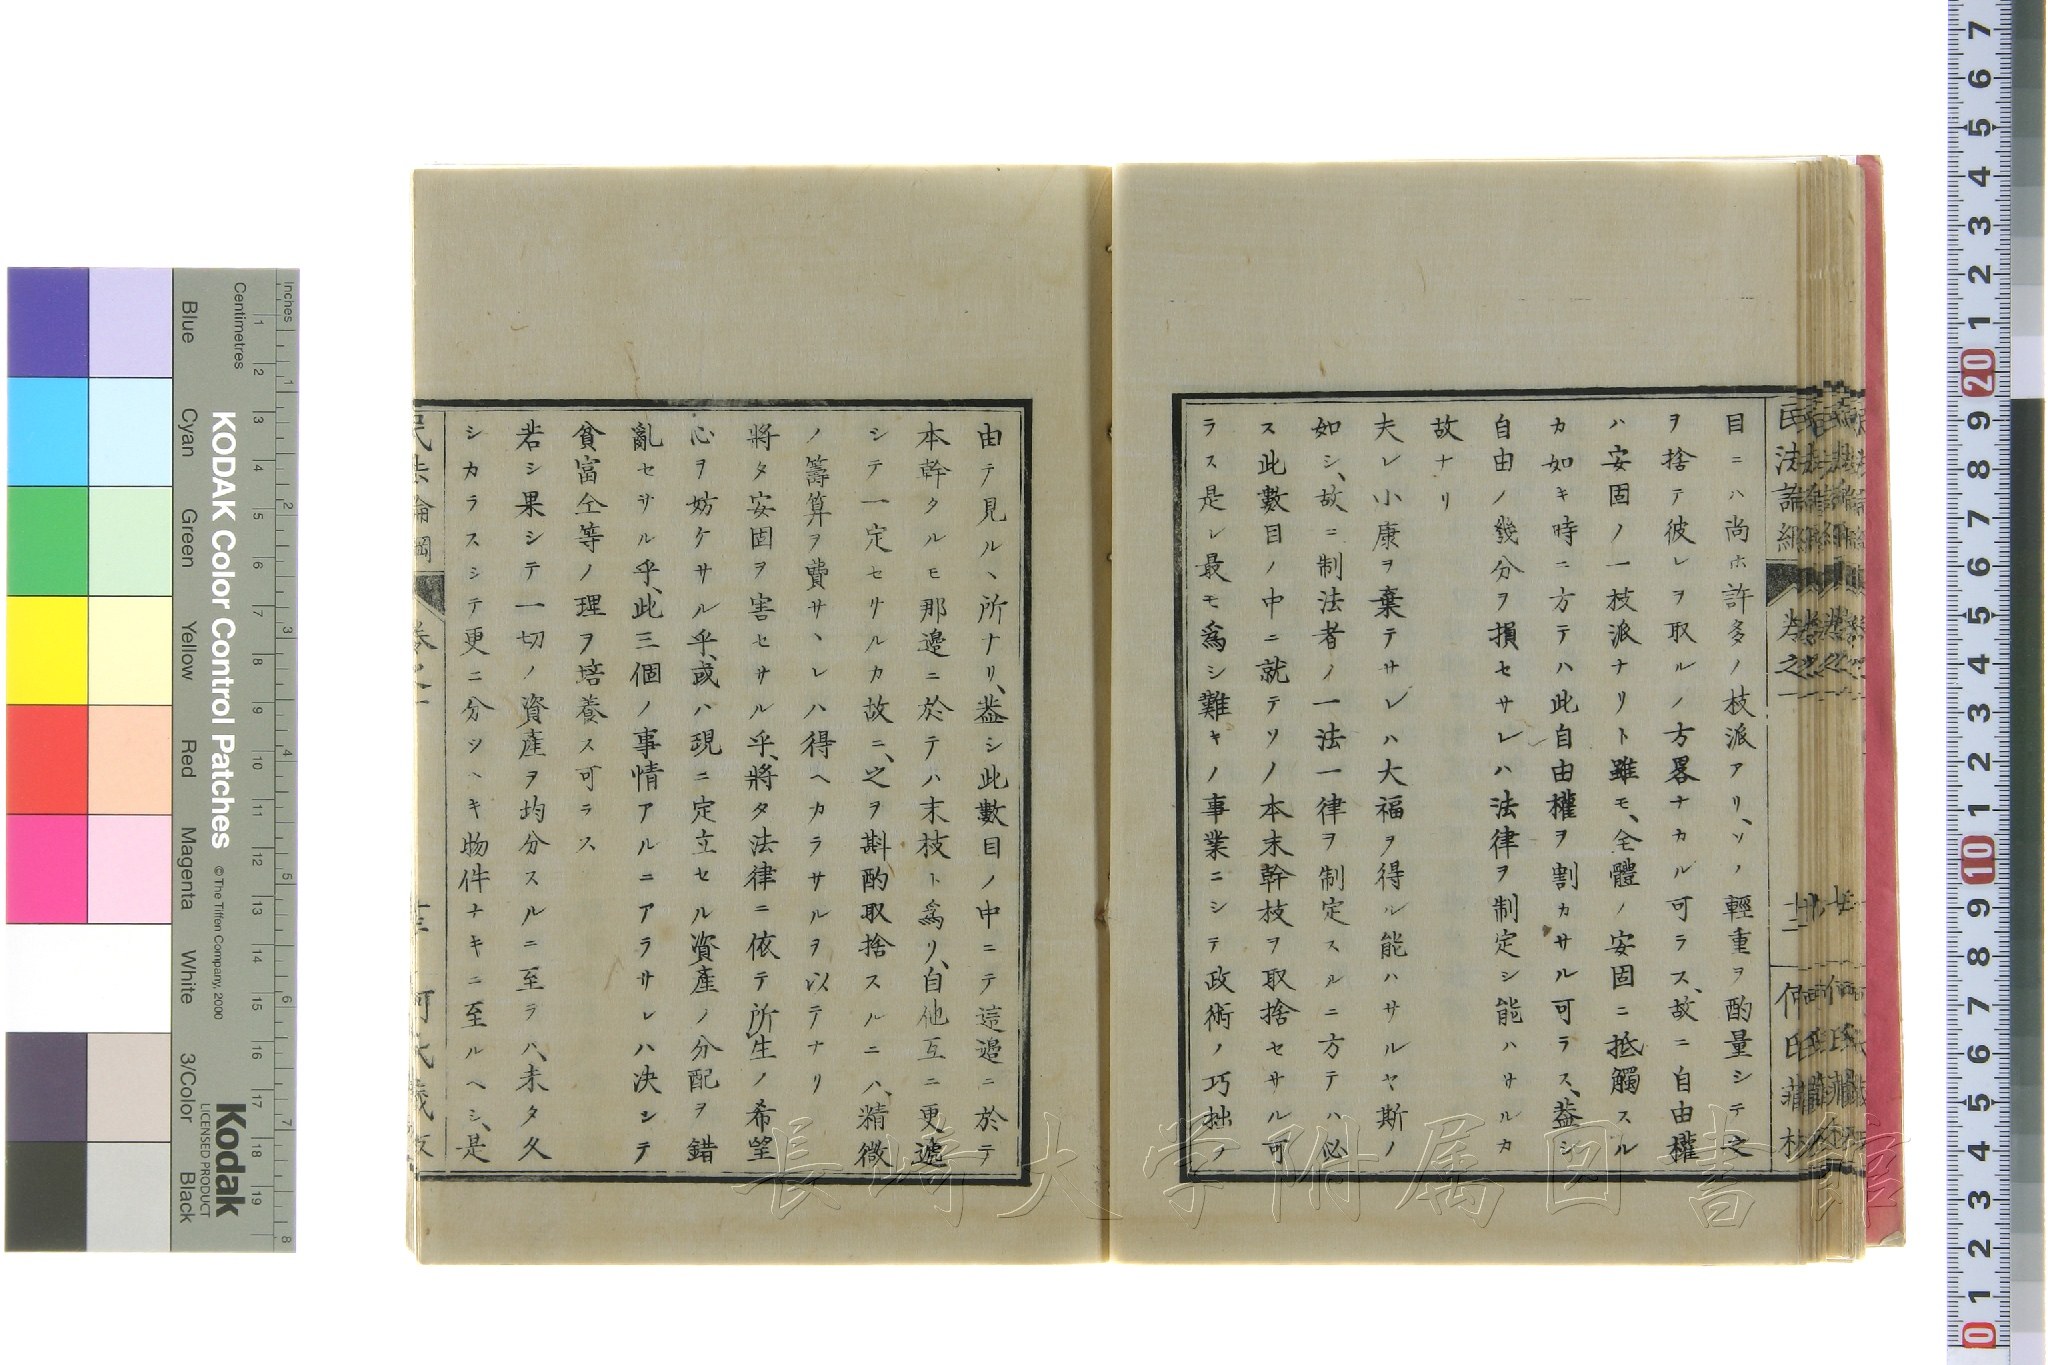 目ニハ尚ホ許多ノ枝派アリ、ソノ輕重ヲ酌量シテ之
ヲ捨テ彼レヲ取ルノ方畧ナカル可ラス、故ニ自由權
ハ安固ノ一枝派ナリト雖モ、全體ノ安固ニ抵觸スル
カ如キ時ニ方テハ此自由權ヲ割カサル可ラス、葢シ
自由ノ幾分ヲ損セサレハ法律ヲ制定シ能ハサルカ
故ナリ
夫レ小康ヲ棄テサレハ大福ヲ得ル能ハサルヤ斯ノ
如シ、故ニ制法者ノ一法一律ヲ制定スルニ方テハ必
ス此數目ノ中ニ就テソノ本末幹枝ヲ取捨セサル可
ラス是レ最モ爲シ難キノ事業ニシテ政術ノ巧拙ノ
由テ見ル丶所ナリ、葢シ此數目ノ中ニテ這邉ニ於テ
本幹タルモ那邉ニ於テハ末枝ト爲リ、自他互ニ更遞
シテ一定セサルカ故ニ、之ヲ斟酌取捨スルニハ、精微
ノ籌算ヲ費サヽレハ得ヘカラサルヲ以テナリ
將タ安固ヲ害セサル乎、將タ法律ニ依テ所生ノ希望
心ヲ妨ケサル乎、或ハ現ニ定立セル資產ノ分配ヲ錯
亂セサル乎、此三個ノ事情アルニアラサレハ決シテ
貧富仝等ノ理ヲ培養ス可ラス
若シ果シテ一切ノ資產ヲ均分スルニ至ラハ、未タ久
シカラスシテ更ニ分ツヘキ物件ナキニ至ルヘシ、是
民法論綱
卷之一
十二
何氏藏板
長崎大学附属図書館
KODAK Color Control Patches
© The Tiffen Company, 2000
Kodak
LICENSED PRODUCT
Inches
Centimetres
Blue
Cyan
Green
Yellow
Red
Magenta
White
3/Color
Black
1 2 3 4 5 6 7 8 9 10 11 12 13 14 15 16 17 18 19
1 2 3 4 5 6 7 8
7 6 5 4 3 2 1 20 9 8 7 6 5 4 3 2 1 10 9 8 7 6 5 4 3 2 1 0